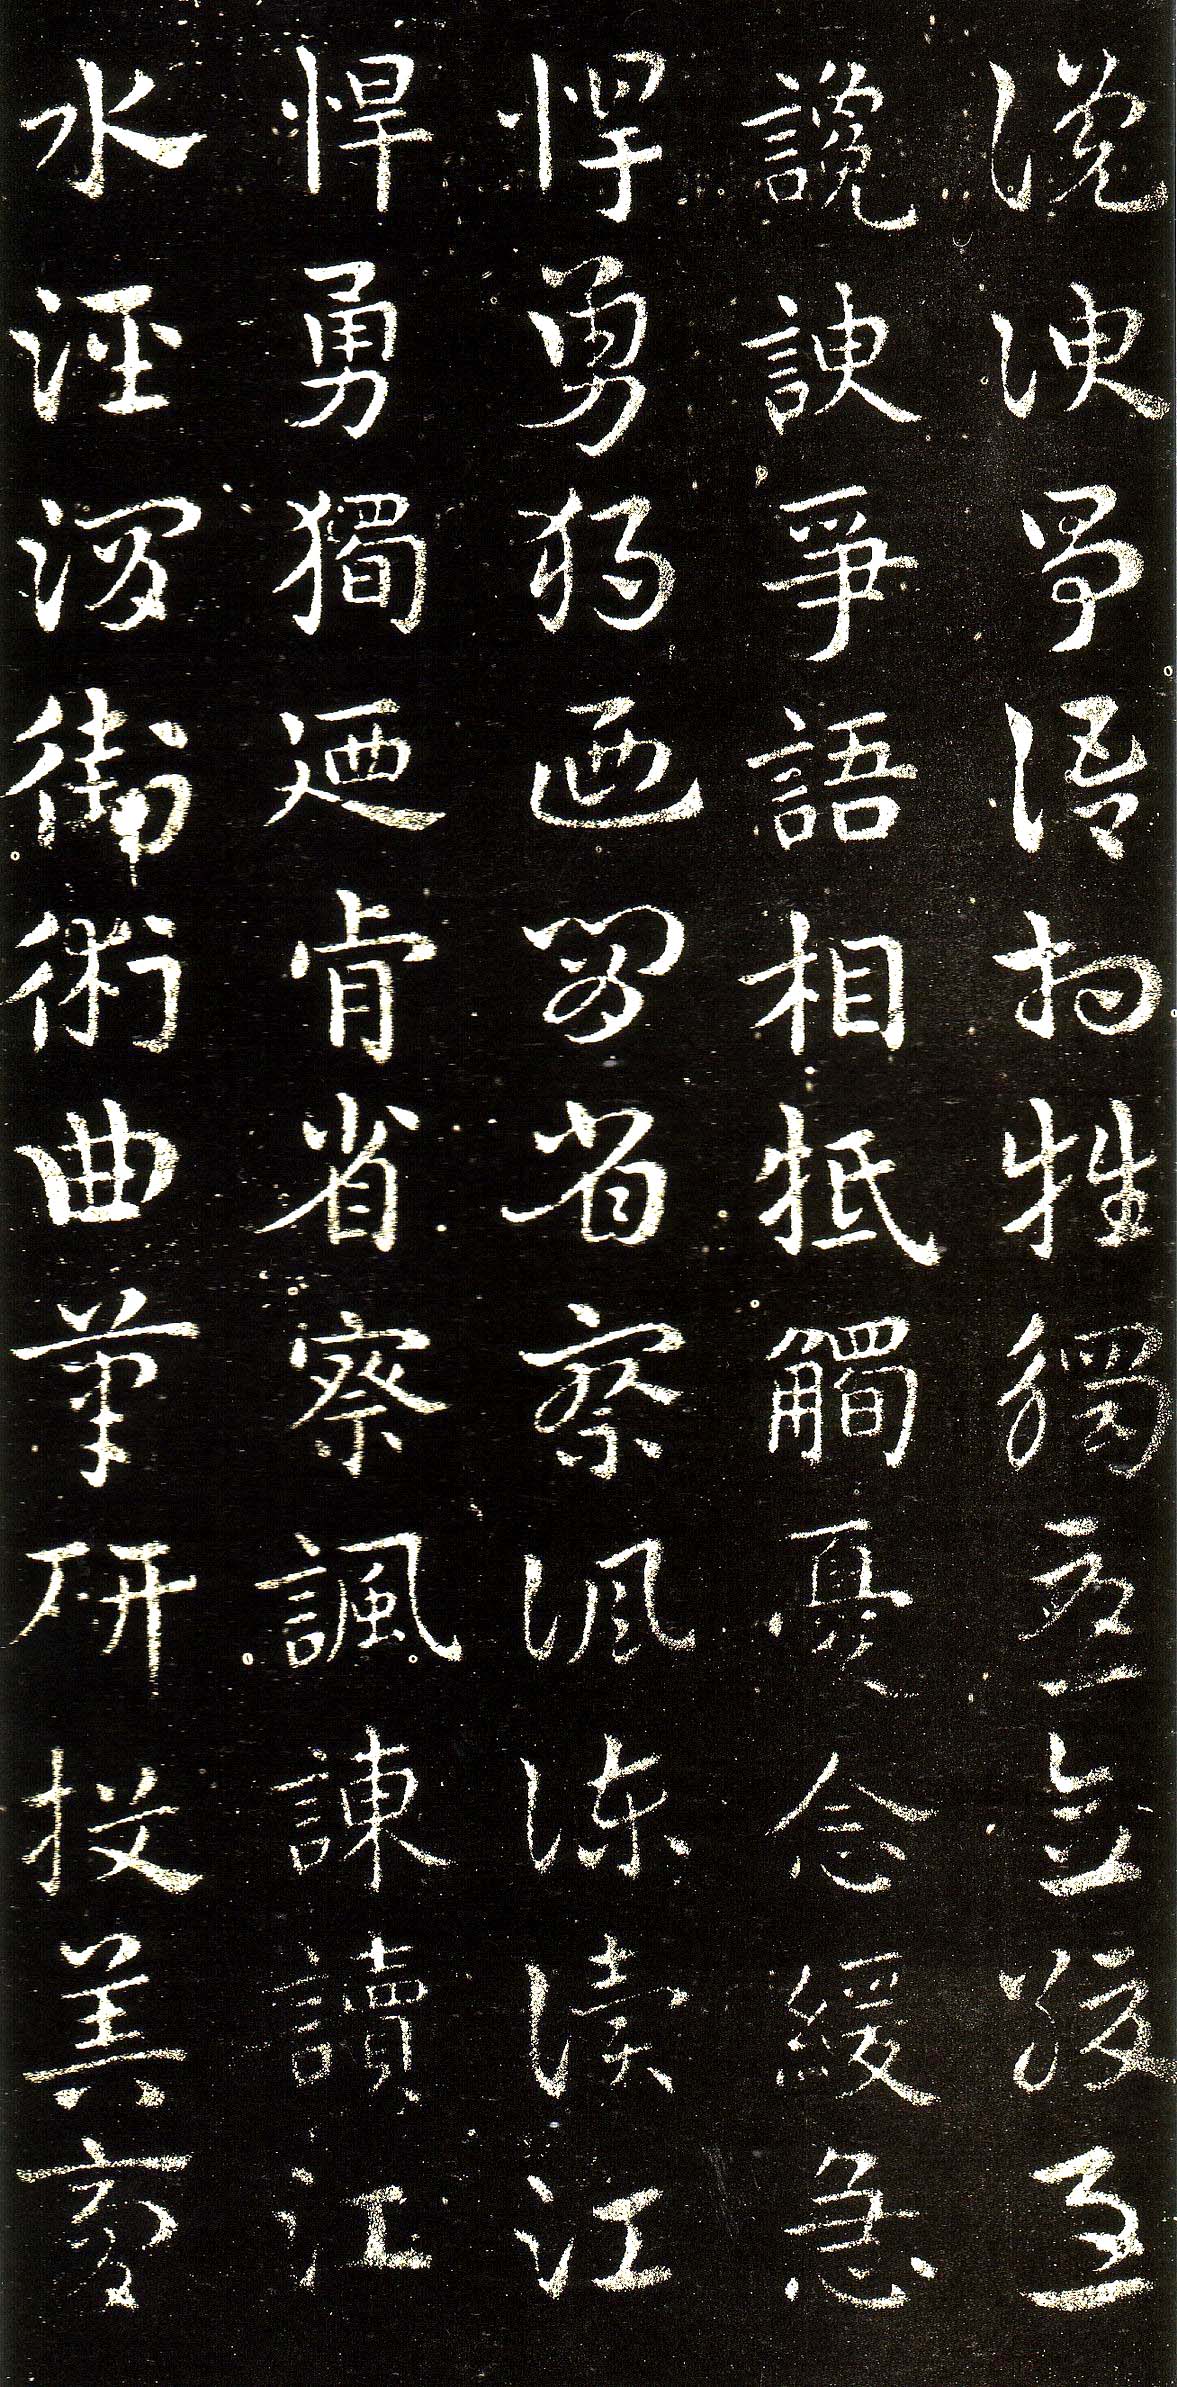 讒諛爭語相牴觸憂念緩急
讒諛爭語相牴觸憂念緩急
悍勇獨迺肯省察諷諫讀江
悍勇獨迺肯省察諷諫讀江
水涇渭街術曲筆研投筭膏